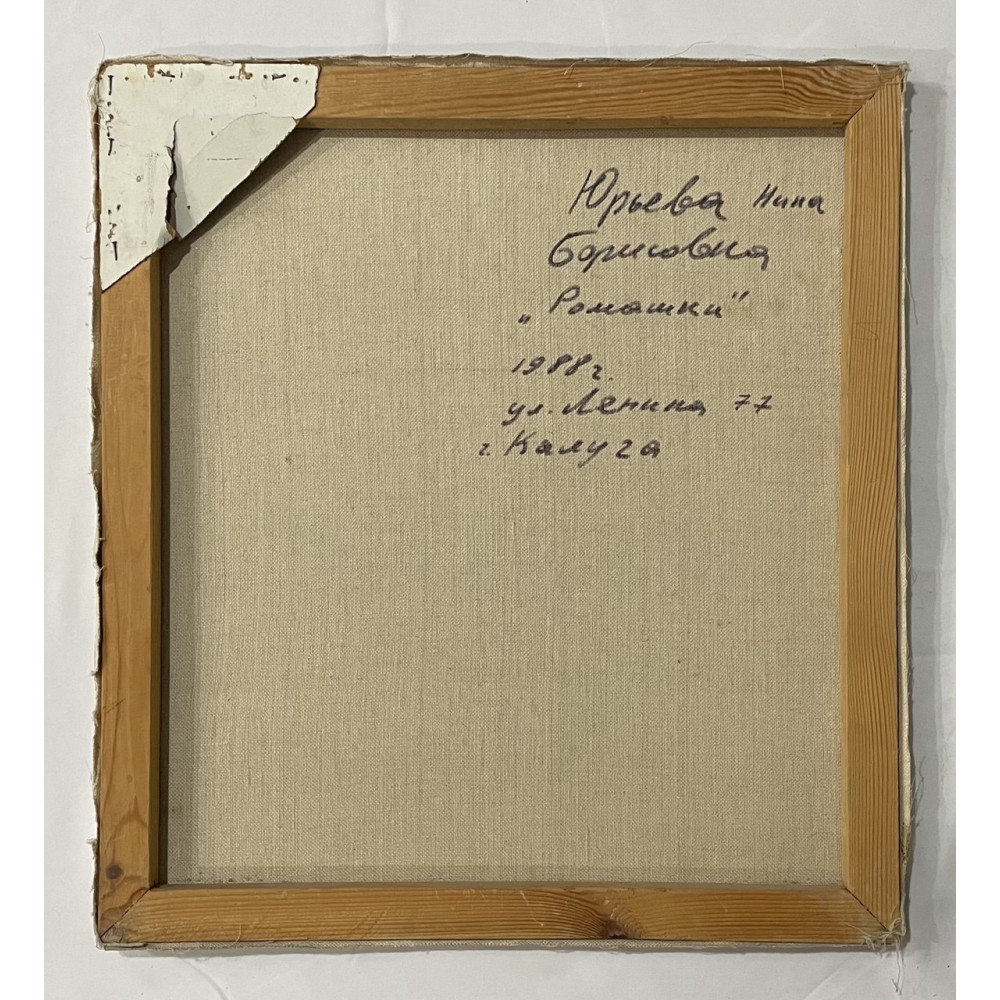 Юрьева Нина
Борисовна
„Ромашки"
1988г.
ул. Ленина 77
г. Калуга